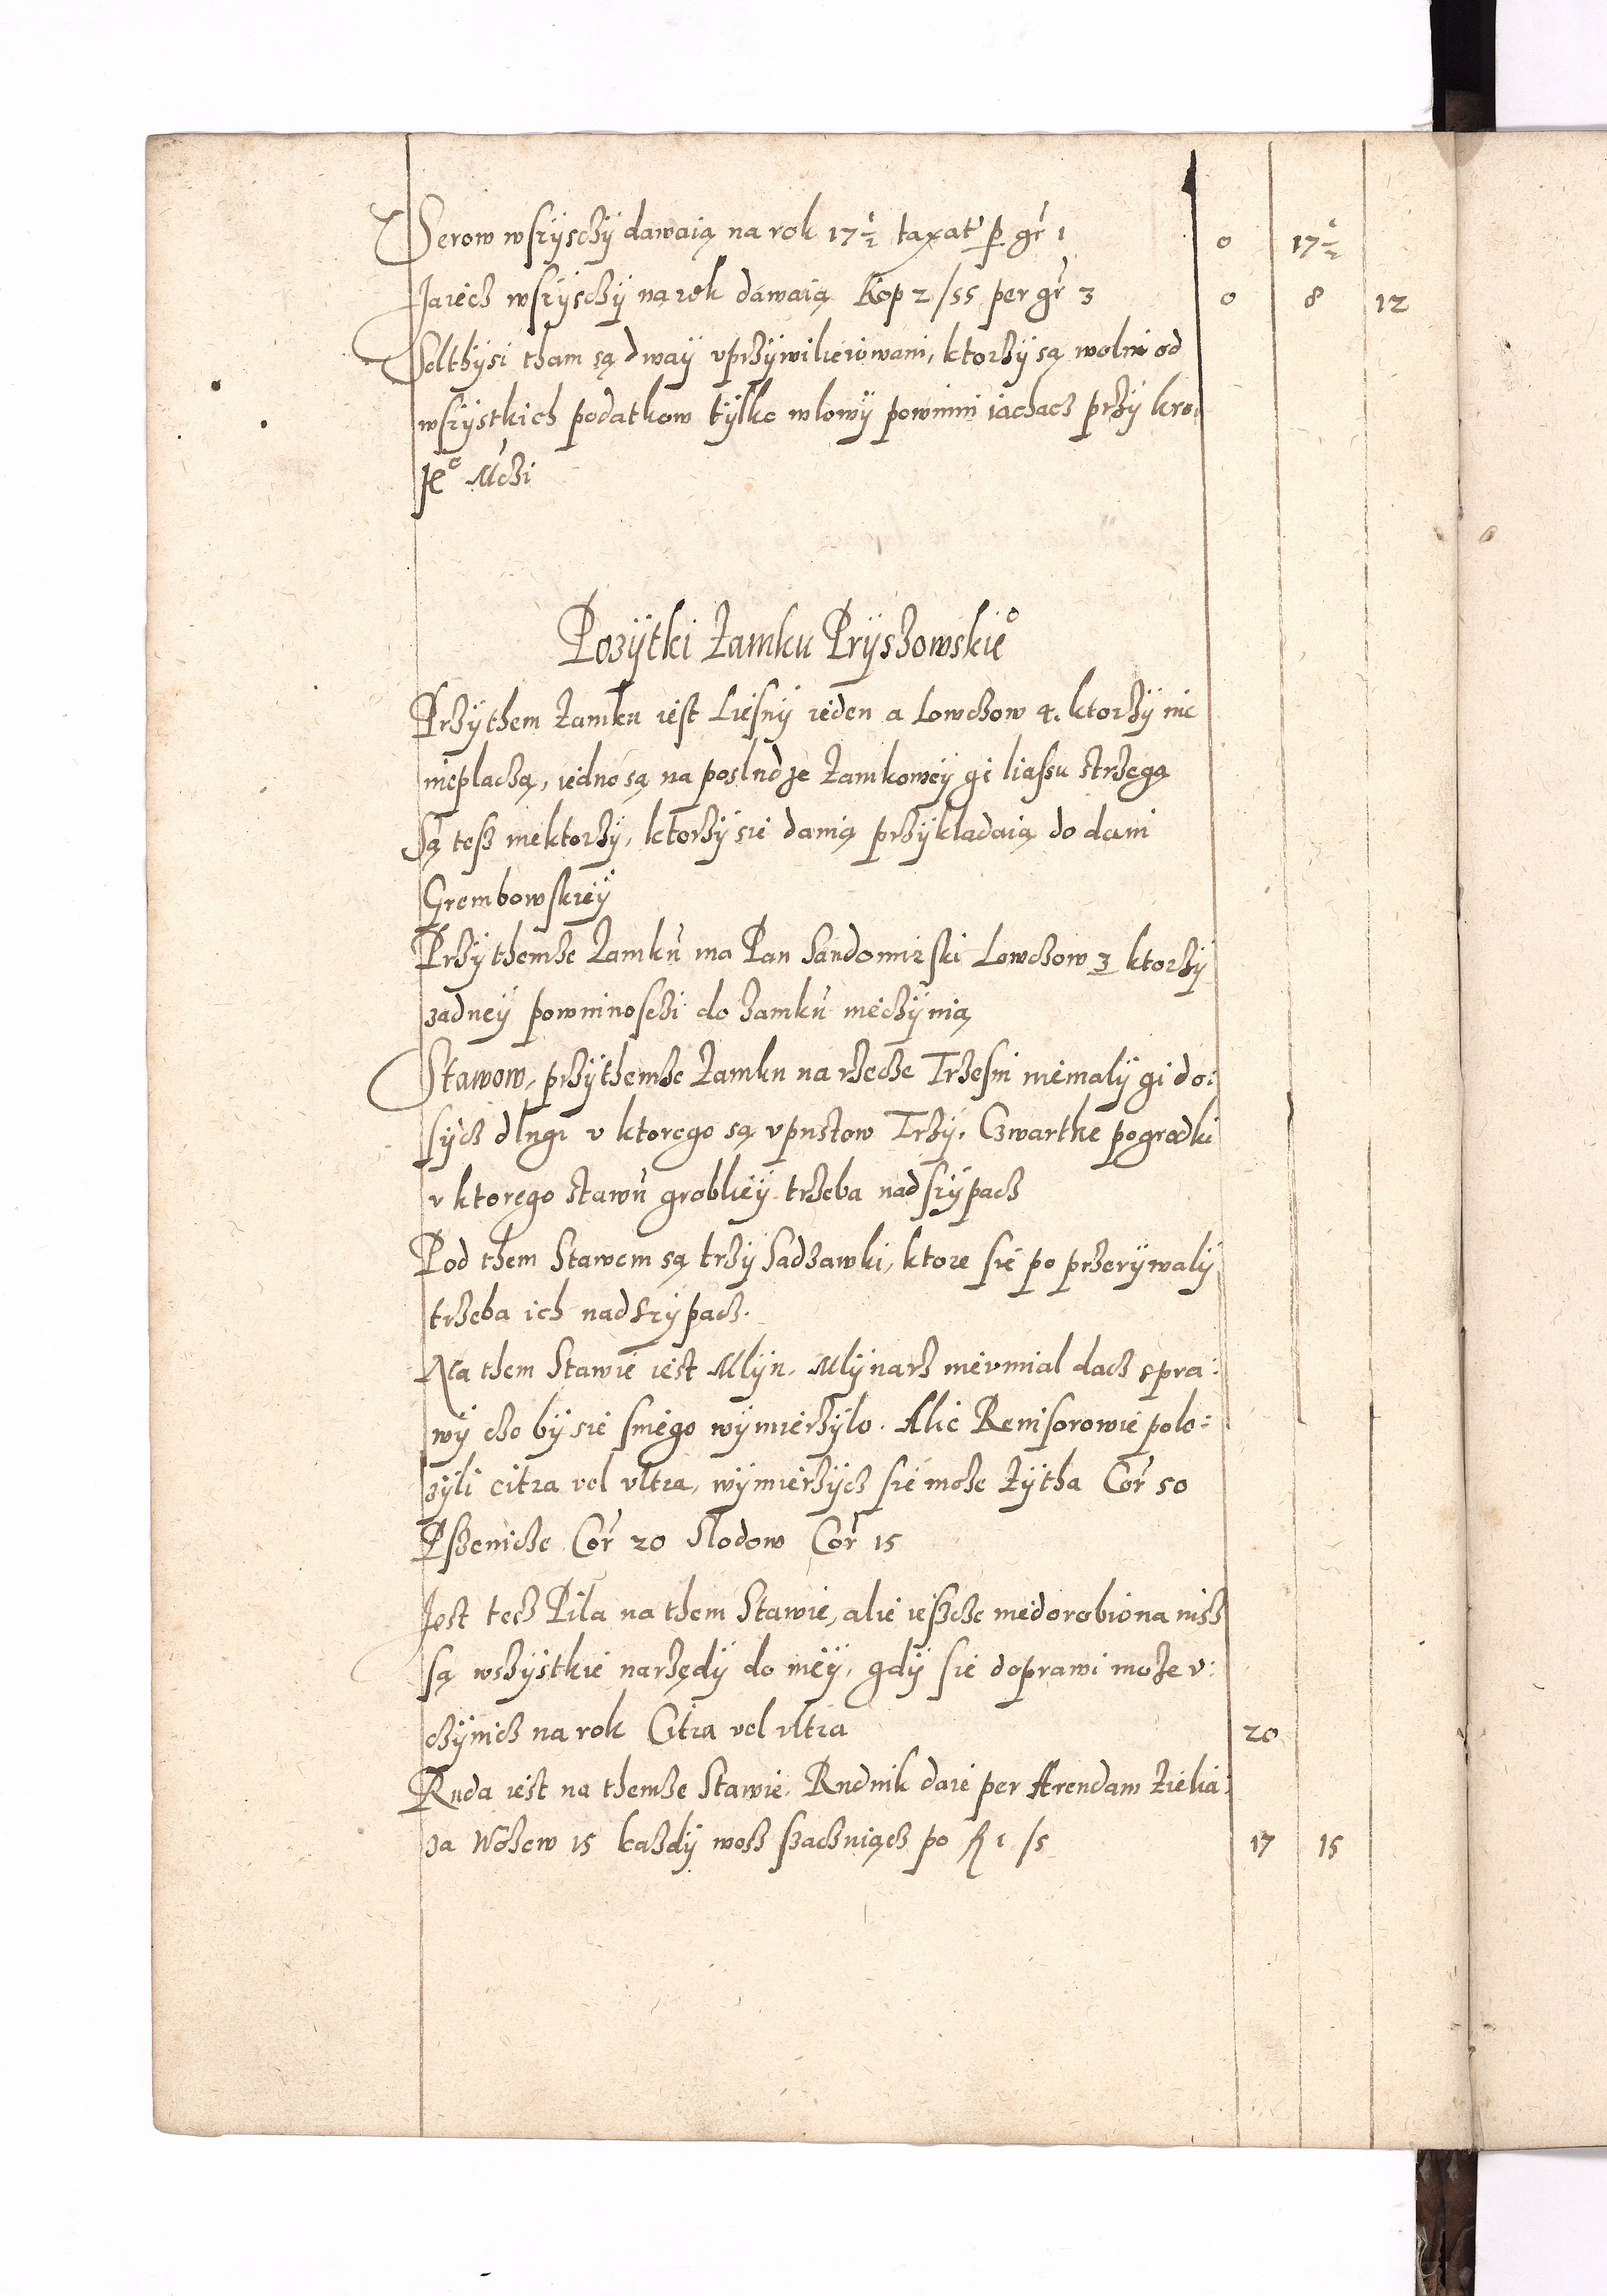 Serow wszyschÿ dawaią na rok 17½ taxat' p gr 1 0 17½
Jaiecz wszyschÿ na rok dawaią Kop 2/55 per gr 3 0 8 12
Soltÿsi tham są dwaÿ vprzÿwileiowani, ktorzÿ są wolni od
wszÿstkich podatkow tÿlko wlowÿ powinni iachacz przÿ kro:
Je° Mczi
Pozÿtki Zamku Prÿszowskie°
Przÿ them Zamku iest Liesnÿ ieden a Lowczow 4. ktorzÿ nic
nieplaczą, iedno są na posludze Zamkoweÿ gi liassu strzegą
Są tesz niektorzÿ, ktorzÿ sie danią przÿkladaią do dani
Grembowskieÿ
Przÿ themze Zamku ma Pan Sandomirski Lowczow 3 ktorzÿ
zadneÿ powinnosczi do zamku nieczÿnią
Stawow, przÿ themze Zamku na rzecze Trzesni niemalÿ gi do:
sÿcz dlugi v ktorego są vpustow Trzÿ. Czwarthe pogrodki
v ktorego stawu groblieÿ trzeba nadsÿpacz
Pod them Stawem są trzÿ Sadzawki, ktore sie po przerÿwalÿ
trzeba ich nadszÿpacz.
Na them Stawie iest Mlÿn. Mlÿnarz nievmial dacz spra:
wÿ czo bÿ sie snieго wÿmierzÿlo. Alie Reuisorowie polo:
zÿli citra vel vltra, wÿmierzÿcz sie moze Zÿtha Cor 50
Pszenicze Cor 20 Slodow Cor 15
Jest tesz Pila na them Stawie, alie ieszcze niedorobiona nisz
są wszÿstkie narzędÿ do nieÿ, gdÿ sie doprawi moze v:
czÿnicz na rok Citra vel vltra 20
Ruda iest na themze Stawie. Rudnik daie per Arendam Zielia:
za Wozow 15 kazdÿ wosz szacuiącz po fl 1/5 17 15